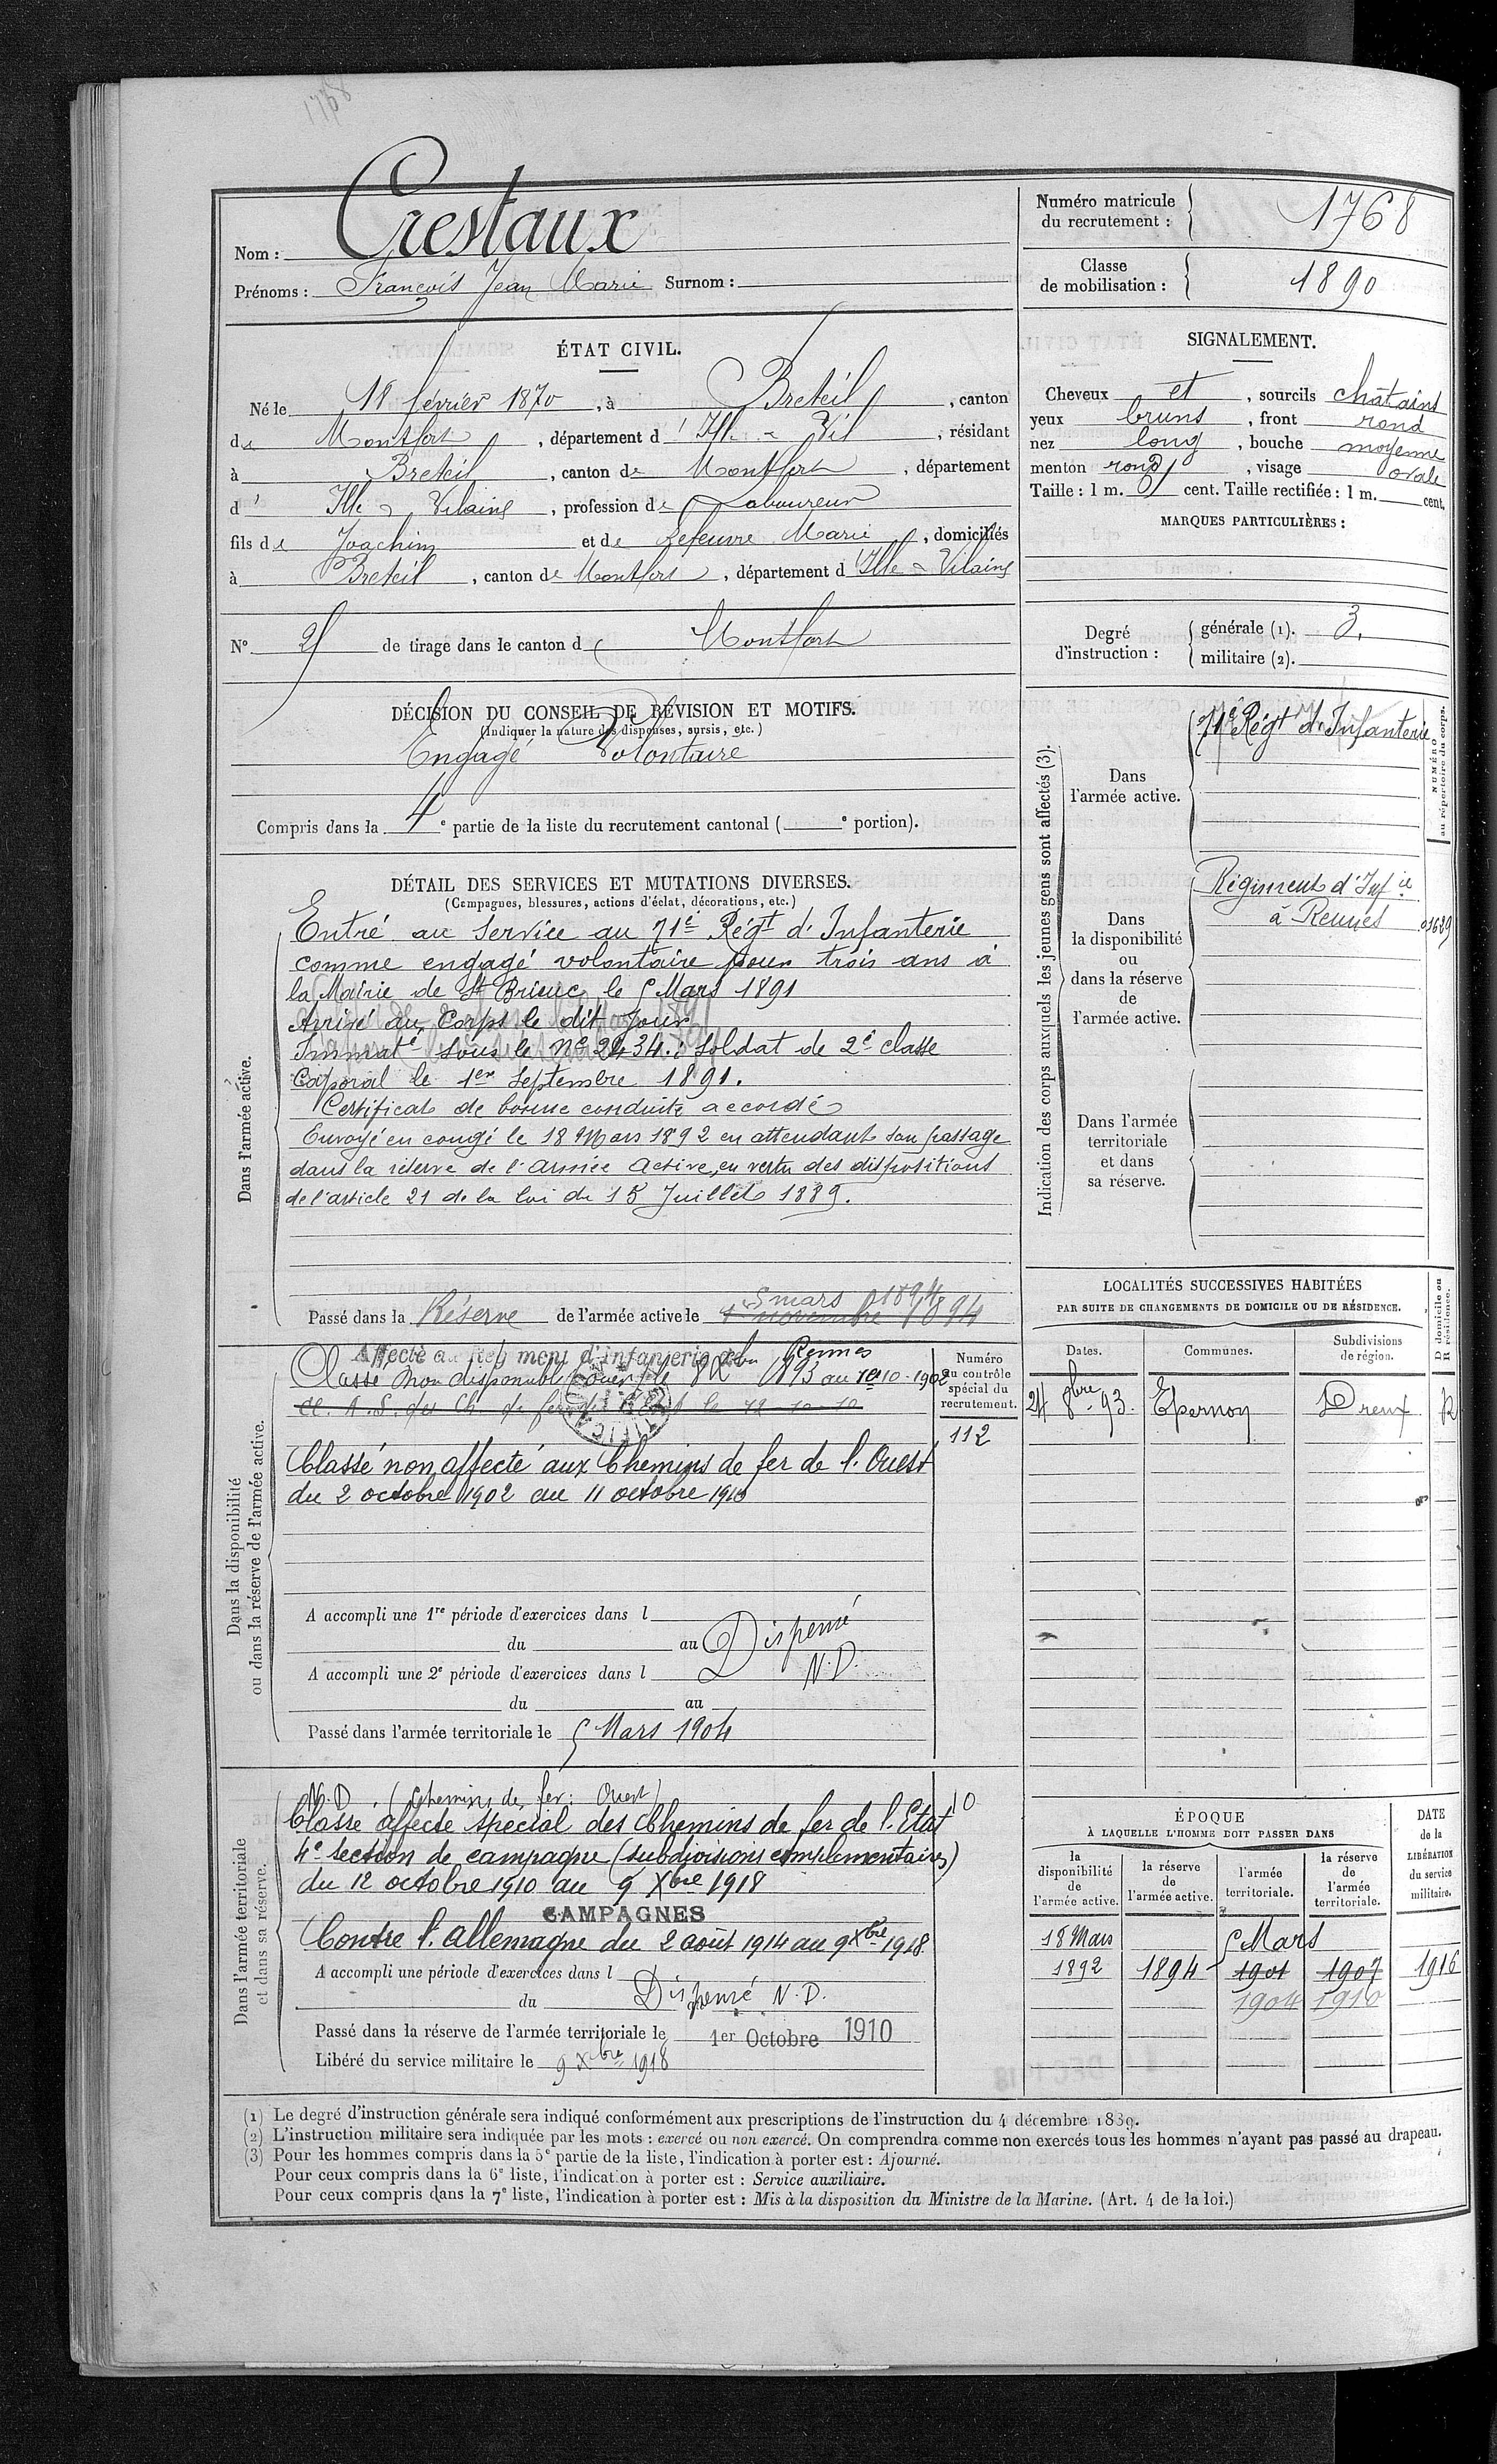 1768
Nom : Crestaux
Prénoms : François Jean Marie Surnom :
Numéro matricule du recrutement : 1768
Classe de mobilisation : 1890
ÉTAT CIVIL.
Né le 18 février 1870, à Breteil, canton
de Montfort, département d'Ille & Vil, résidant
à Breteil, canton de Montfort, département
d' Ille & Vilaine, profession de Laboureur
fils de Joachim et de Lefeuvre Marie, domiciliés
à Breteil, canton de Montfort, département d'Ille & Vilaine
SIGNALEMENT.
Cheveux et, sourcils châtains
yeux bruns, front rond
nez long, bouche moyenne
menton rond, visage ovale
Taille : 1 m. cent. Taille rectifiée : 1 m. cent.
MARQUES PARTICULIÈRES :
N° de tirage dans le canton d Montfort
Degré d'instruction : générale (1). 3.
militaire (2).
DÉCISION DU CONSEIL DE RÉVISION ET MOTIFS.
(Indiquer la nature des dispenses, sursis, etc.)
Engagé Volontaire
Compris dans la 4e partie de la liste du recrutement cantonal ( e portion).
Indication des corps auxquels les jeunes gens sont affectés (3).
NUMÉRO au répertoire du corps.
Dans l'armée active.
71e Régt d'Infanterie
Dans la disponibilité ou dans la réserve de l'armée active.
Régiment d'Infie
à Rennes 01689
Dans l'armée territoriale et dans sa réserve.
DÉTAIL DES SERVICES ET MUTATIONS DIVERSES.
(Campagnes, blessures, actions d'éclat, décorations, etc.)
Dans l'armée active.
Entré au service au 71e Régt d'Infanterie
comme engagé volontaire pour trois ans à
la Mairie de St Brieuc le 5 Mars 1891
Arrivé au Corps le dit jour
Immaté sous le No 2434. Soldat de 2e classe
Caporal le 1er Septembre 1891.
Certificat de bonne conduite accordé
Envoyé en congé le 18 Mars 1892 en attendant son passage
dans la réserve de l'Armée Active, en vertu des dispositions
de l'article 21 de la loi du 15 Juillet 1889.
5 mars 1894
Passé dans la Réserve de l'armée active le 1er novembre 1894
Dans la disponibilité ou dans la réserve de l'armée active.
Affecté au Régiment d'infanterie de Rennes
Classé Non disponible Ouest le 1893 au 1er 10-1902
Numéro au contrôle spécial du recrutement.
112
Classé non affecté aux Chemins de fer de l'Ouest
du 2 octobre 1902 au 11 octobre 1910
A accompli une 1re période d'exercices dans l
du au Dispensé
A accompli une 2e période d'exercices dans l N.D.
du au
Passé dans l'armée territoriale le 5 Mars 1904
LOCALITÉS SUCCESSIVES HABITÉES
PAR SUITE DE CHANGEMENTS DE DOMICILE OU DE RÉSIDENCE.
D domicile ou R résidence.
Dates. Communes. Subdivisions de région.
24 8bre 93. Epernon Dreux R
Dans l'armée territoriale et dans sa réserve.
N.D. (Chemins de fer : Ouest) 10
Classé affecté spécial des Chemins de fer de l'Etat
4e section de campagne (subdivisions complémentaires)
du 12 octobre 1910 au 9 Xbre 1918
CAMPAGNES
Contre l'Allemagne du 2 août 1914 au 9 Xbre 1918
A accompli une période d'exercices dans l
du Dispensé N.D.
Passé dans la réserve de l'armée territoriale le 1er Octobre 1910
Libéré du service militaire le 9 Xbre 1918
ÉPOQUE
À LAQUELLE L'HOMME DOIT PASSER DANS
la disponibilité de l'armée active.
la réserve de l'armée active.
l'armée territoriale.
la réserve de l'armée territoriale.
DATE de la LIBÉRATION du service militaire.
18 Mars 5 Mars
1892 1894 1901 1907 1916
1904 1910
(1) Le degré d'instruction générale sera indiqué conformément aux prescriptions de l'instruction du 4 décembre 1889.
(2) L'instruction militaire sera indiquée par les mots : exercé ou non exercé. On comprendra comme non exercés tous les hommes n'ayant pas passé au drapeau.
(3) Pour les hommes compris dans la 5e partie de la liste, l'indication à porter est : Ajourné.
Pour ceux compris dans la 6e liste, l'indication à porter est : Service auxiliaire.
Pour ceux compris dans la 7e liste, l'indication à porter est : Mis à la disposition du Ministre de la Marine. (Art. 4 de la loi.)